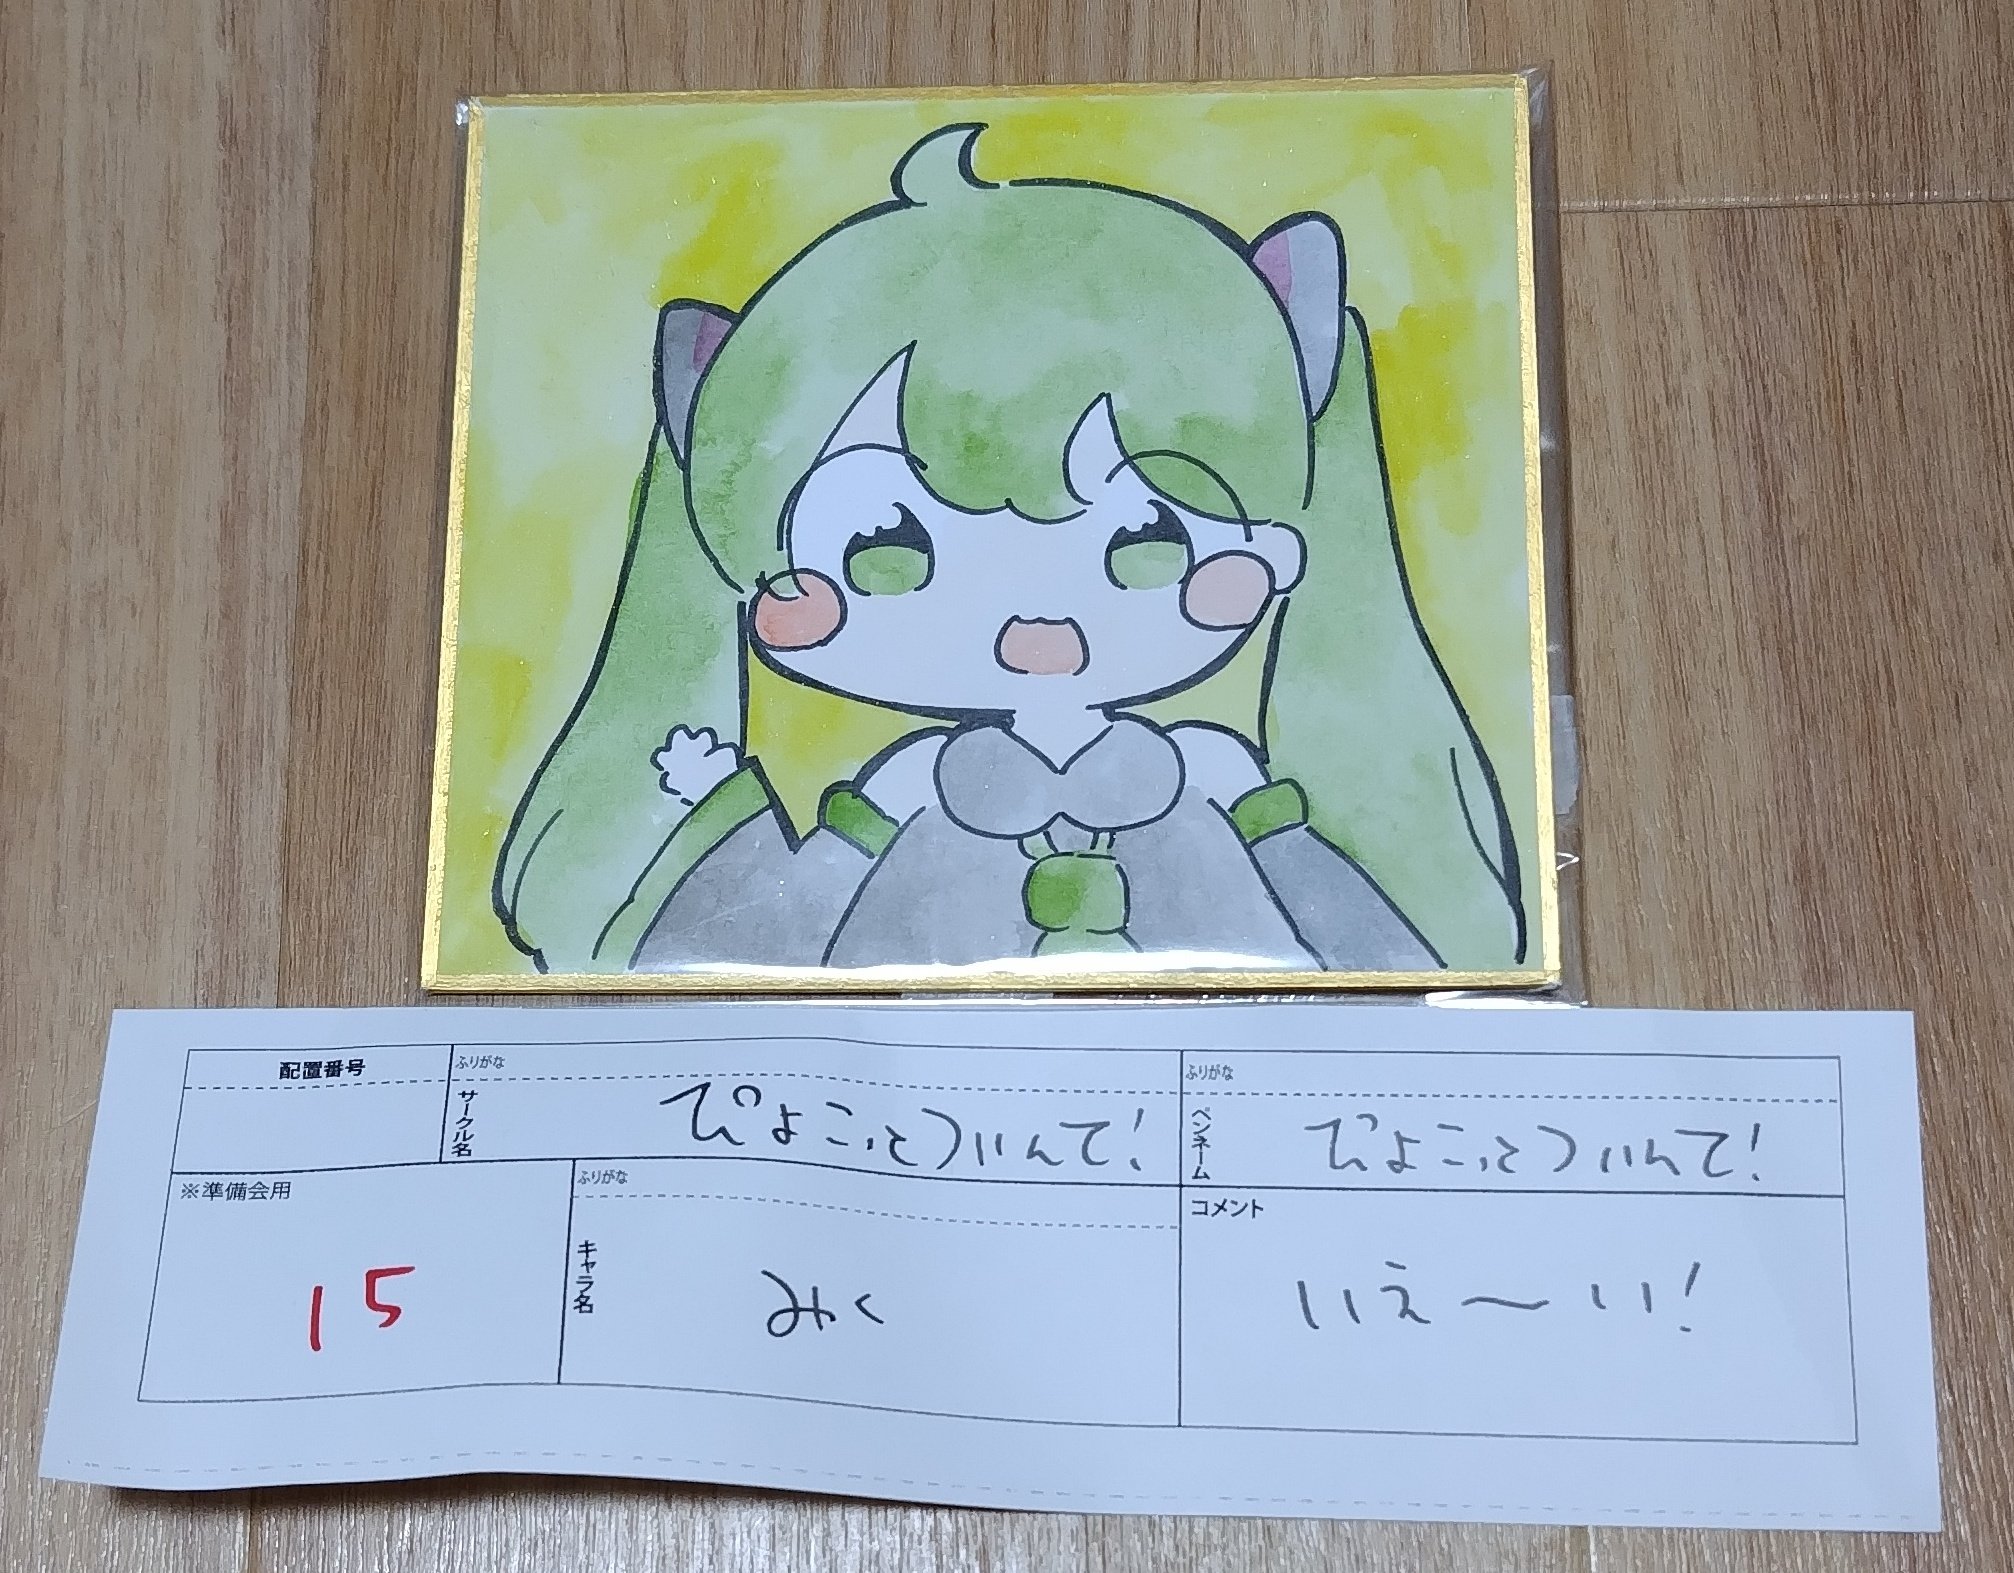 配置番号
ふりがな
サークル名
ぴよこっとついんて!
ふりがな
ペンネーム
ぴよこっとついんて!
※準備会用
15
ふりがな
キャラ名
みく
コメント
いえ～い!